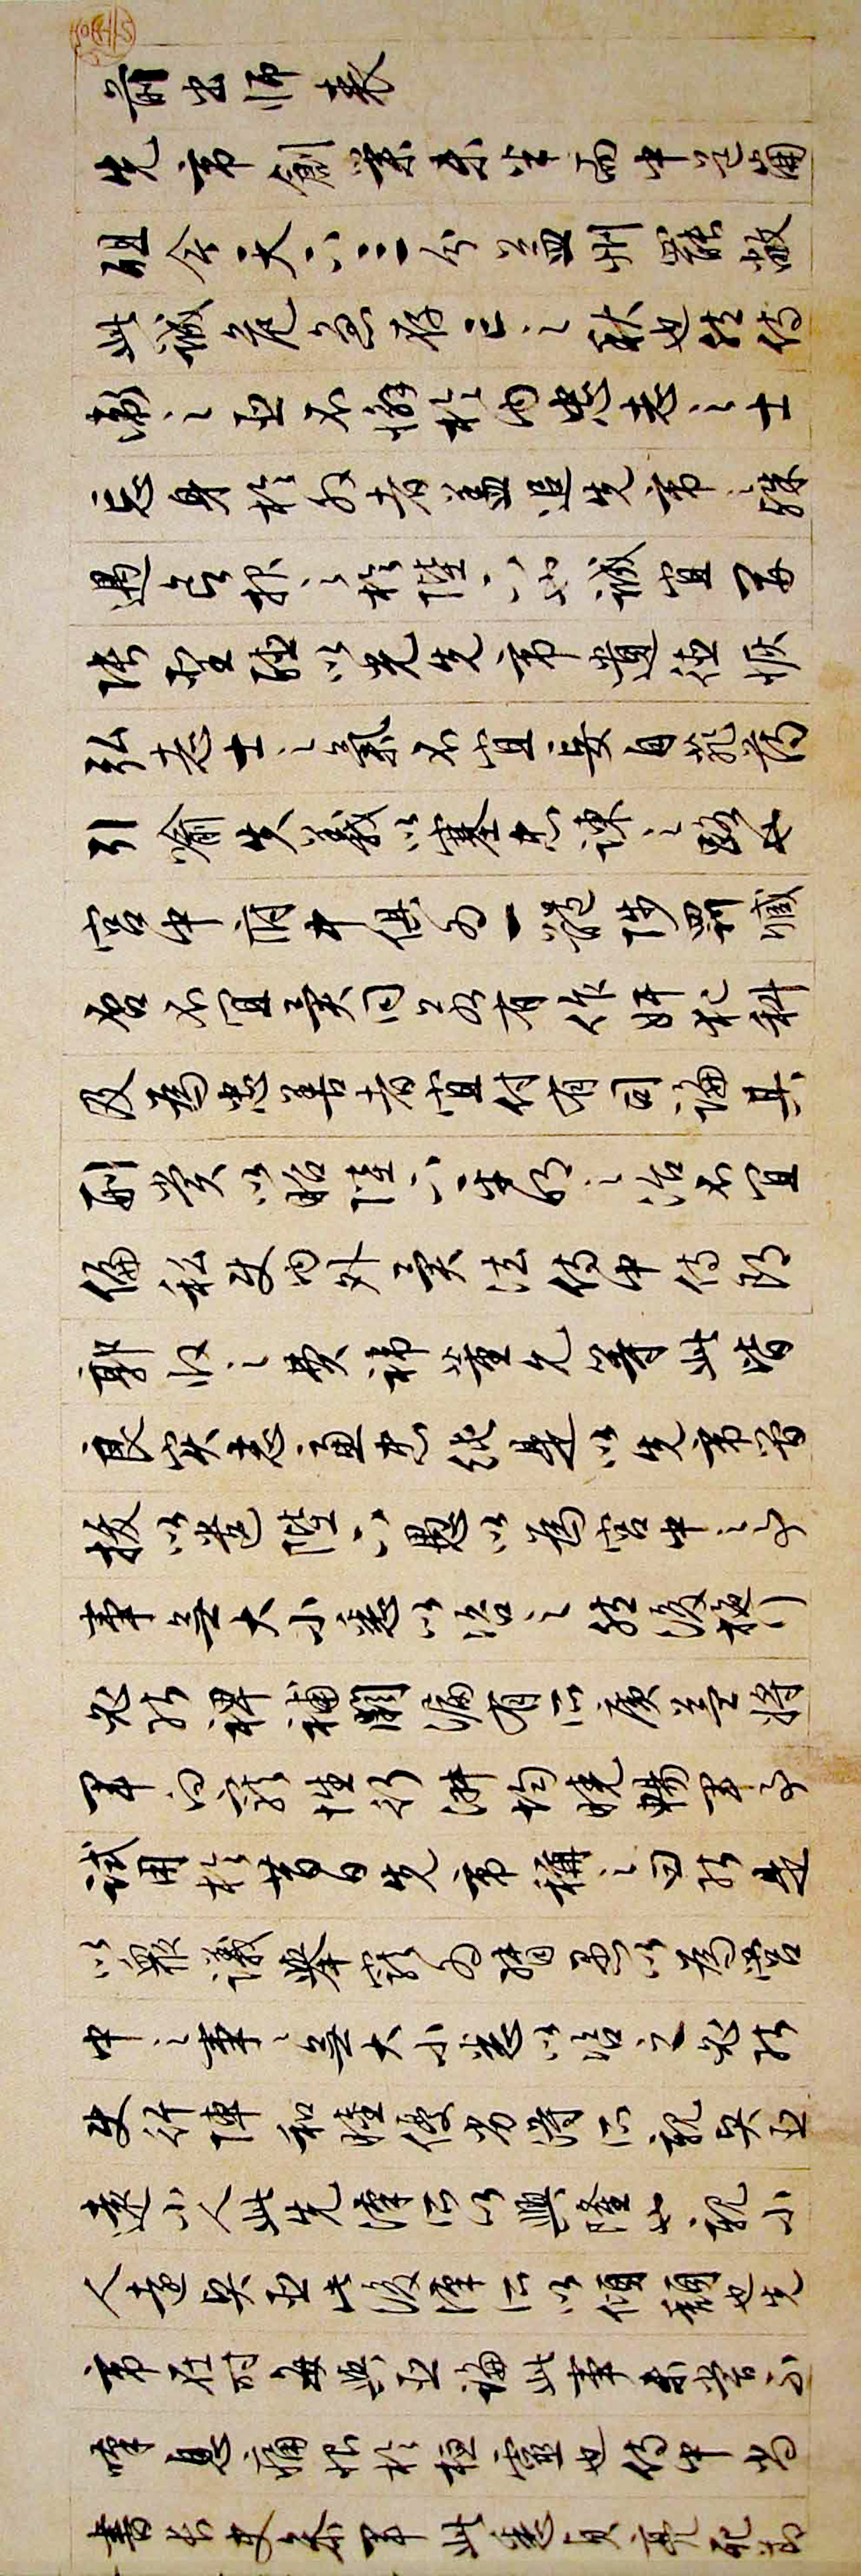 前出師表
先帝創業未半而中道崩
殂今天下三分益州罷敝
此誠危急存亡之秋也然侍
衛之臣不懈於內忠志之士
忘身於外者蓋追先帝之殊
遇欲報之於陛下也誠宜開
張聖聽以光先帝遺德恢
弘志士之氣不宜妄自菲薄
引喻失義以塞忠諫之路也
宮中府中俱為一體陟罰臧
否不宜異同若有作奸犯科
及為忠善者宜付有司論其
刑賞以昭陛下平明之治不宜
偏私使內外異法侍中侍郎
郭攸之費禕董允等此皆
良實志慮忠純是以先帝簡
拔以遺陛下愚以為宮中之事
事無大小悉以咨之然後施行
必能裨補闕漏有所廣益將
軍向寵性行淑均曉暢軍事
試用於昔日先帝稱之曰能是
以眾議舉寵為督愚以為營
中之事事無大小悉以咨之必能
使行陣和睦優劣得所親賢臣
遠小人此先漢所以興隆也親小
人遠賢臣此後漢所以傾頹也先
帝在時每與臣論此事未嘗不
嘆息痛恨於桓靈也侍中尚
書長史參軍此悉貞亮死節